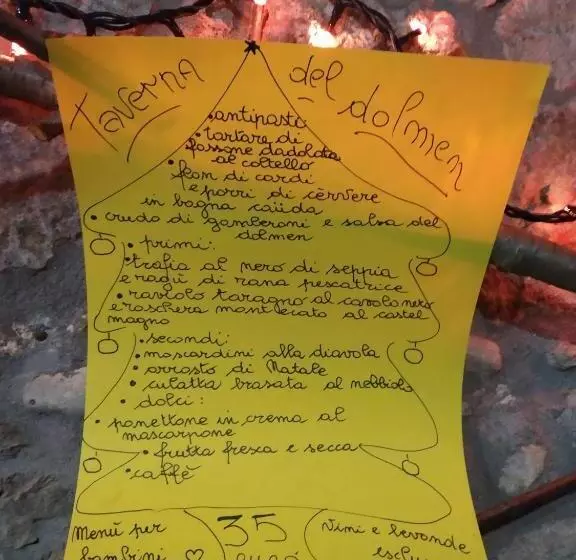 Taverna del dolmen
• antipasti
• tartare di
fassone dadolata
al coltello
• flan di cardi
e porri di cèrvere
in bagna caüda
• crudo di gamberoni e salsa del
dolmen
• primi:
• trofia al nero di seppia
e ragù di rana pescatrice
• raviolo taragno al cavolo nero
e raschera mantecato al castel
magno
• secondi:
• moscardini alla diavola
• arrosto di Natale
• culatta brasata al nebbiolo
• dolci:
• panettone in crema al
mascarpone
• frutta fresca e secca
• caffè
Menù per
bambini ♡
35
euro
Vini e bevande
esclu